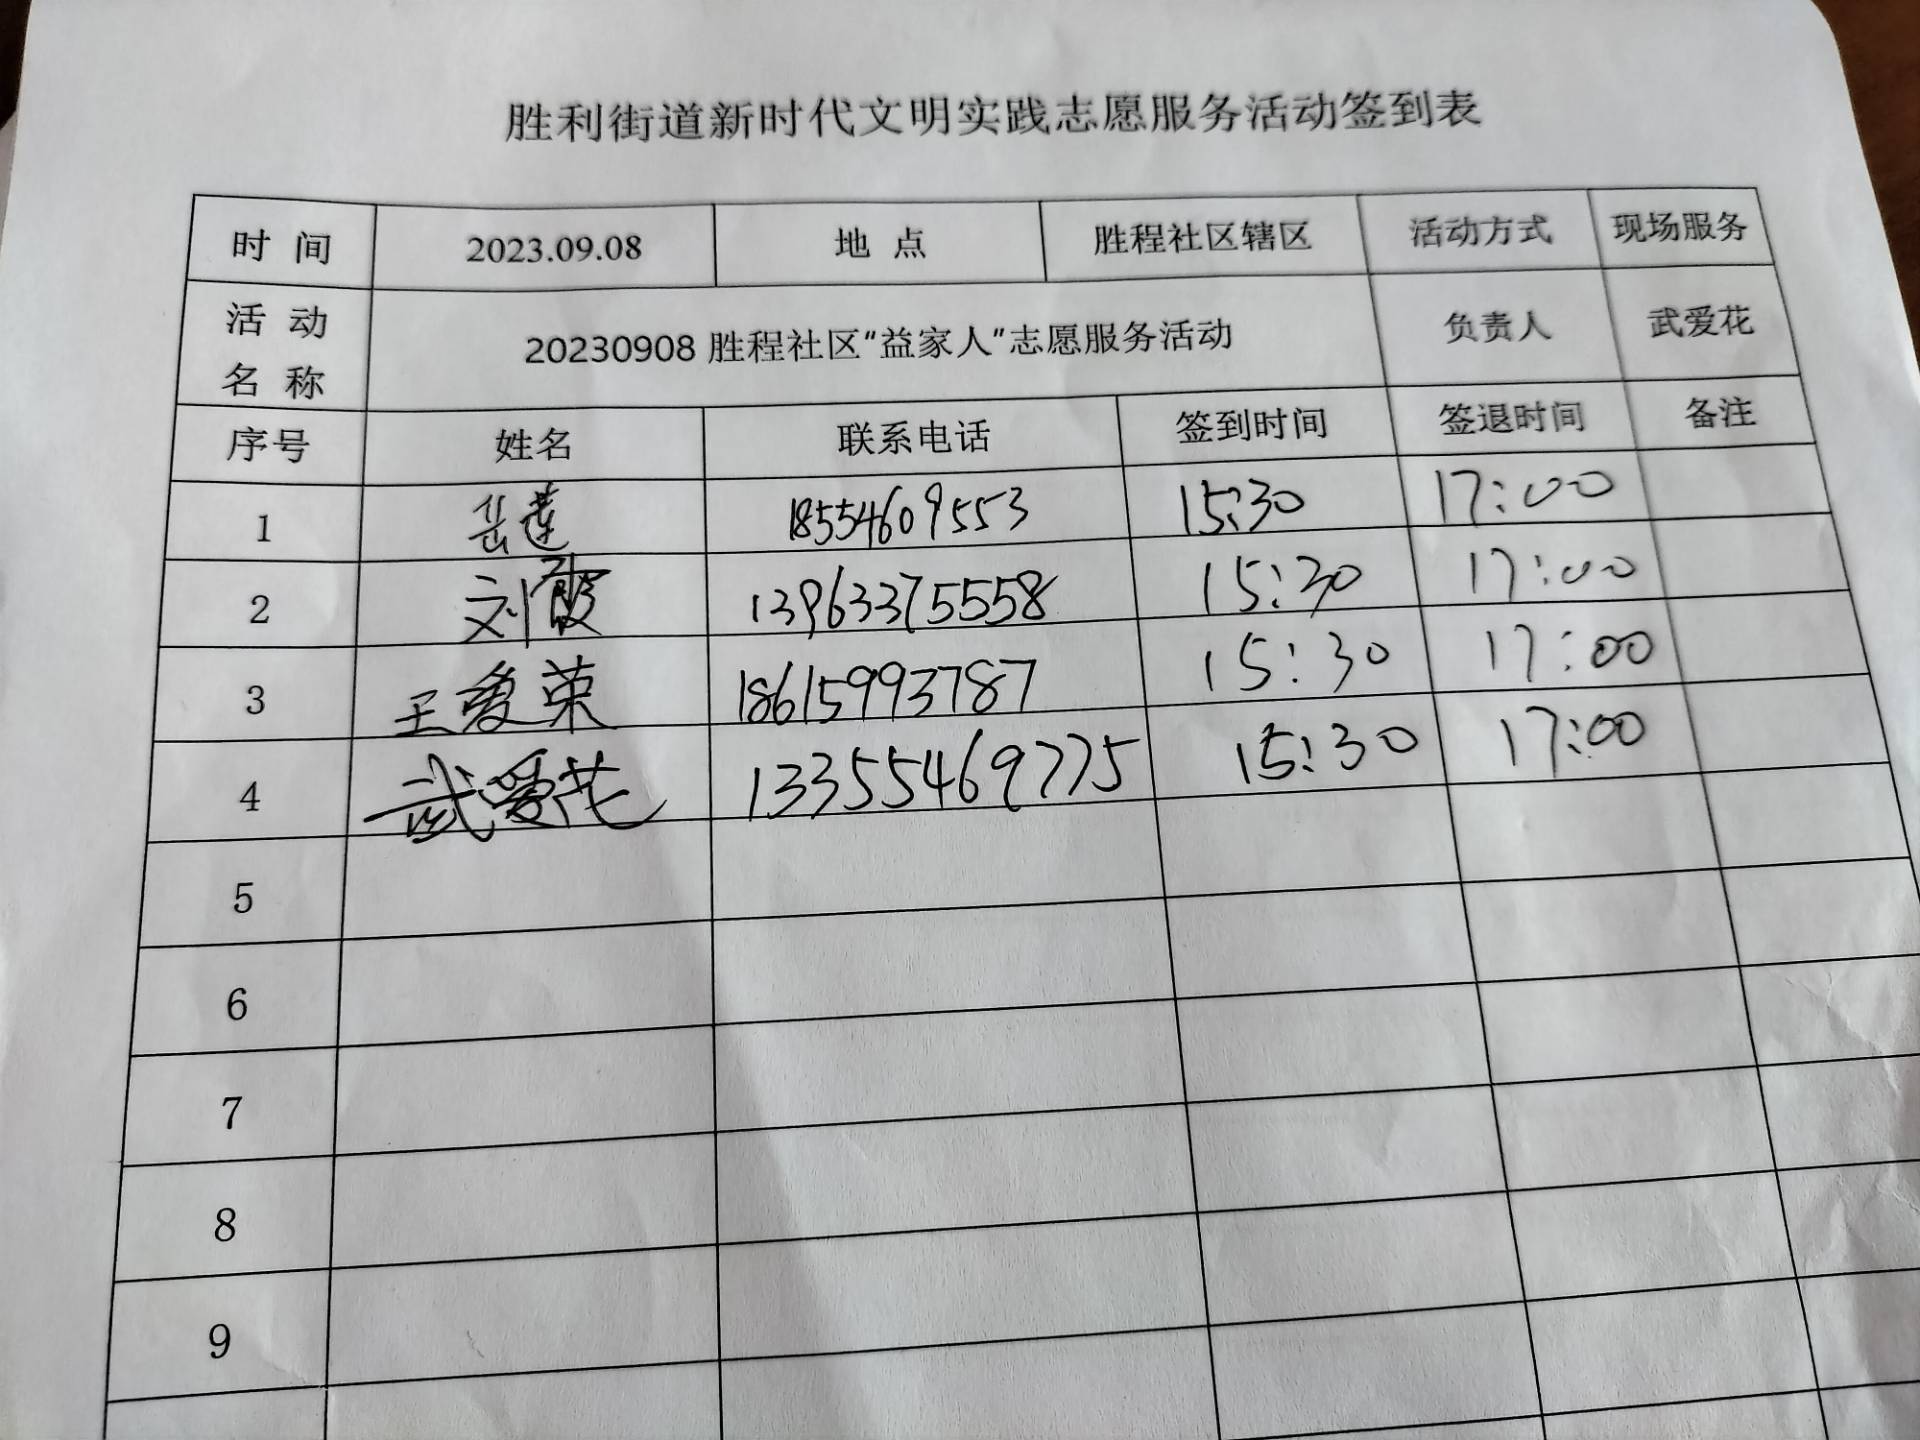 胜利街道新时代文明实践志愿服务活动签到表
时 间 2023.09.08 地 点 胜程社区辖区 活动方式 现场服务
活 动
名 称 20230908 胜程社区“益家人”志愿服务活动 负责人 武爱花
序号 姓名 联系电话 签到时间 签退时间 备注
1 岳莲 18554609553 15:30 17:00
2 刘霞 13963375558 15:30 17:00
3 王爱荣 18615993787 15:30 17:00
4 武爱花 13355469775 15:30 17:00
5
6
7
8
9